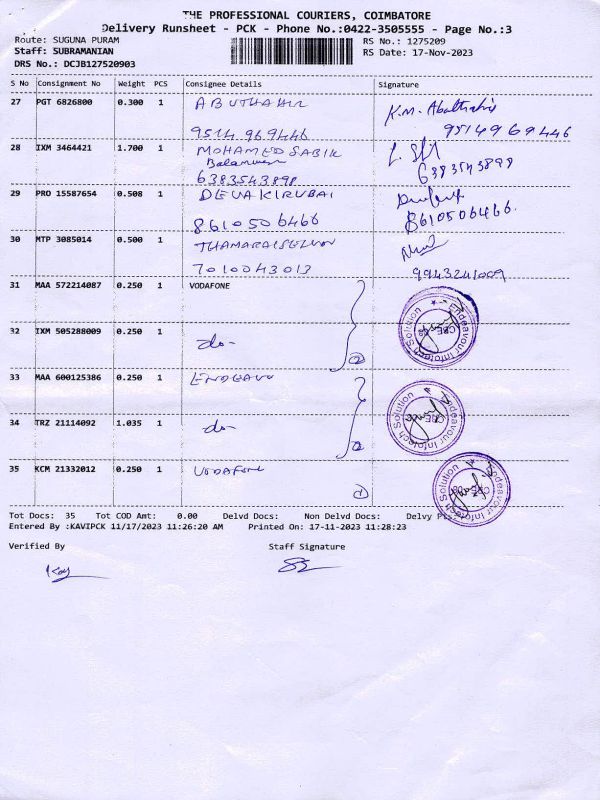 THE PROFESSIONAL COURIERS, COIMBATORE
Delivery Runsheet - PCK - Phone No.:0422-3505555 - Page No.:3
Route: SUGUNA PURAM RS No.: 1275209
Staff: SUBRAMANIAN RS Date: 17-Nov-2023
DRS No.: DCJB127520903
S No Consignment No Weight PCS Consignee Details Signature
27 PGT 6826800 0.300 1 ABUTHAHIR K.M. Abuthahir
9514 969446 9514969446
28 IXM 3464421 1.700 1 MOHAMED SABIK
6383543898 6383543898
29 PRO 15587654 0.508 1 DEVAKIRUBAI
8610506466 8610506466.
30 MTP 3085014 0.500 1 THAMARAISELVAN
7010043013 9943241009
31 MAA 572214087 0.250 1 VODAFONE
Endeavour Infotech Solution
32 IXM 505288009 0.250 1 do- 2
33 MAA 600125386 0.250 1 ENDEAVU
Endeavour Infotech Solution
34 TRZ 21114092 1.035 1 do- 2
35 KCM 21332012 0.250 1 VODAFONE 1
Endeavour Infotech Solution
Tot Docs: 35 Tot COD Amt: 0.00 Delvd Docs: Non Delvd Docs: Delvy
Entered By :KAVIPCK 11/17/2023 11:26:20 AM Printed On: 17-11-2023 11:28:23
Verified By Staff Signature